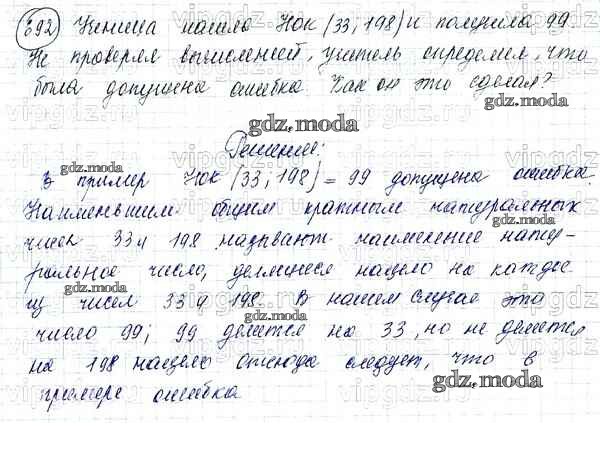 392) Ученица нашла НОК (33, 198) и получила 99.
Не проверяя вычислений, учитель определил, что
была допущена ошибка. Как он это сделал?
gdz.moda
Решение:
gdz.moda
В пример НОК (33, 198) = 99 допущена ошибка.
Наименьшим общим кратным натуральных
gdz.moda
чисел 33 и 198 называют наименьшее нату-
ральное число, делящиеся нацело на каждые
из чисел 33 и 198. В нашем случае это
gdz.moda
gdz.moda
число 99; 99 делится на 33, но не делится
на 198 нацело Отсюда следует, что в
gdz.moda
примере ошибка